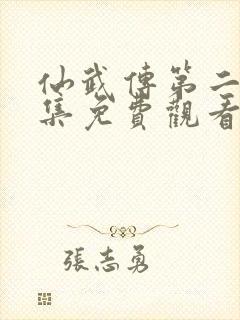 仙武傳第二
集免費觀看
張志勇